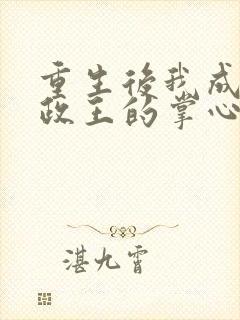 重生後我成
政王的掌心
湛九霄